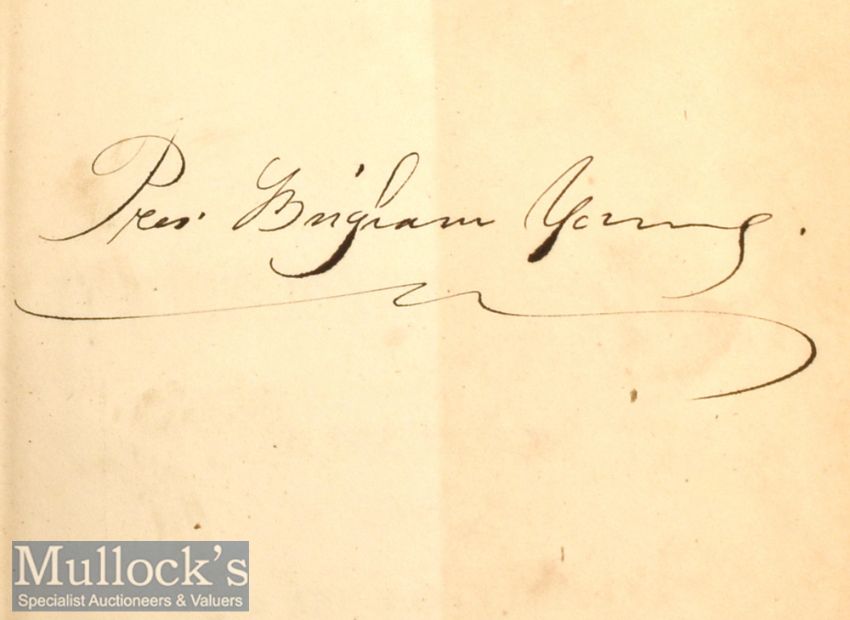 Pres. Brigham Young.
Mullock's
Specialist Auctioneers & Valuers